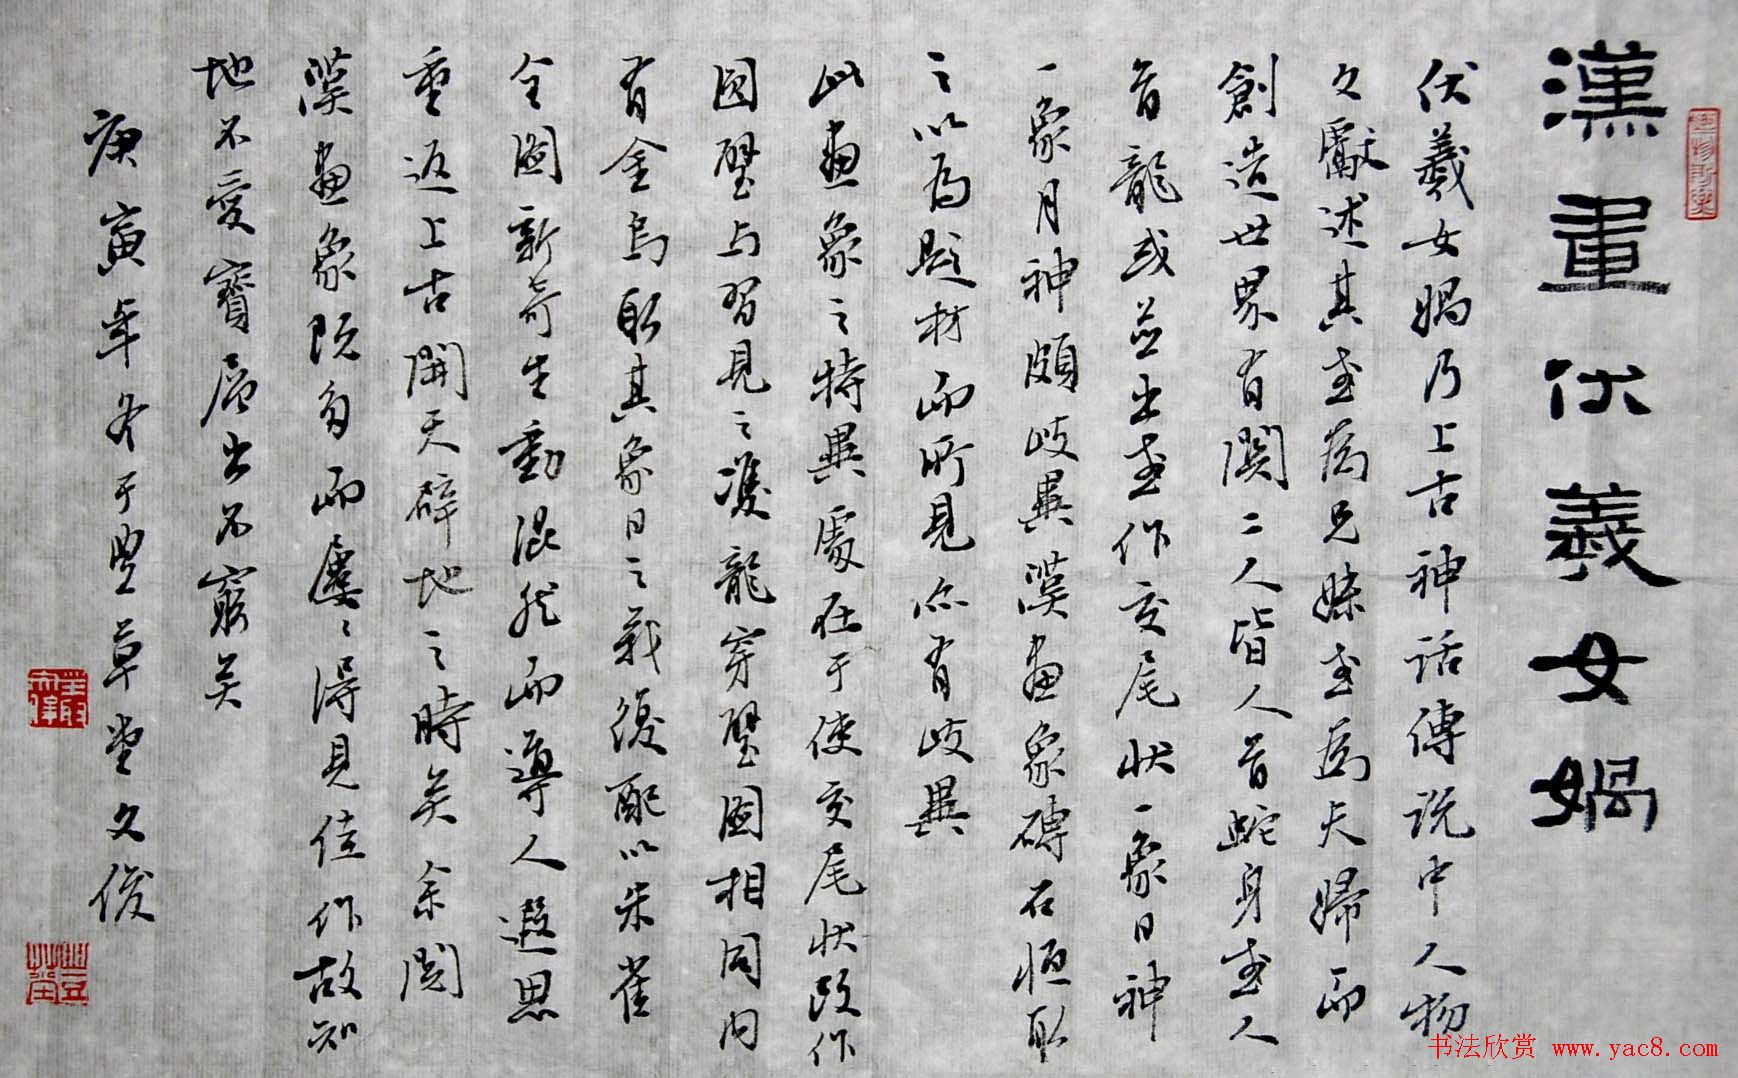 漢畫伏羲女媧
伏羲女媧乃上古神話傳説中人物
文獻述其或為兄妹或為夫婦而
創造世界有関二人皆人首蛇身或人
首龍或並出或作交尾状一象日神
一象月神頗歧異漢畫象磚石恒取
之以為題材而所見亦有歧異
此畫象之特異處在于使交尾状改作
圓璧与習見之雙龍穿璧圖相同内
有金烏取其象日之義復配以朱雀
全圖新奇生動混然而導人遐思
重返上古開天辟地之時矣余閱
漢畫象既多而屢〻得見佳作故知
地不愛寶層出不窮矣
庚寅年冬于豐草堂文俊
書法欣賞 www.yac8.com